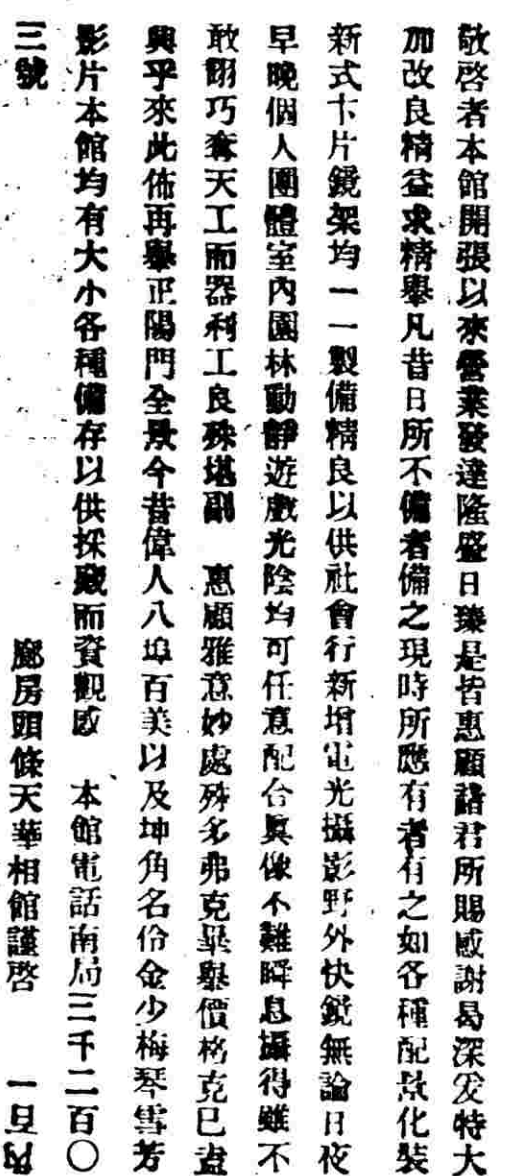 敬啓者本館開張以來營業發達隆盛日臻是皆惠顧諸君所賜感謝曷深茲特大
加改良精益求精舉凡昔日所不備者備之現時所應有者有之如各種配景化裝
新式卞片鏡架均一一製備精良以供社會行新增電光攝影野外快鏡無論日夜
早晚個人團體室內園林動靜遊戲光陰均可任意配合眞像不難瞬息攝得雖不
敢翻巧奪天工而器利工良殊堪副 惠顧雅意妙處殊多弗克畢舉價格克已盍
興乎來此佈再舉正陽門全景今昔偉人八埠百美以及坤角名伶金少梅琴雪芳
影片本館均有大小各種備存以供採藏而資觀感 本館電話南局三千二百〇
三號 廊房頭條天華相館謹啓 一百內